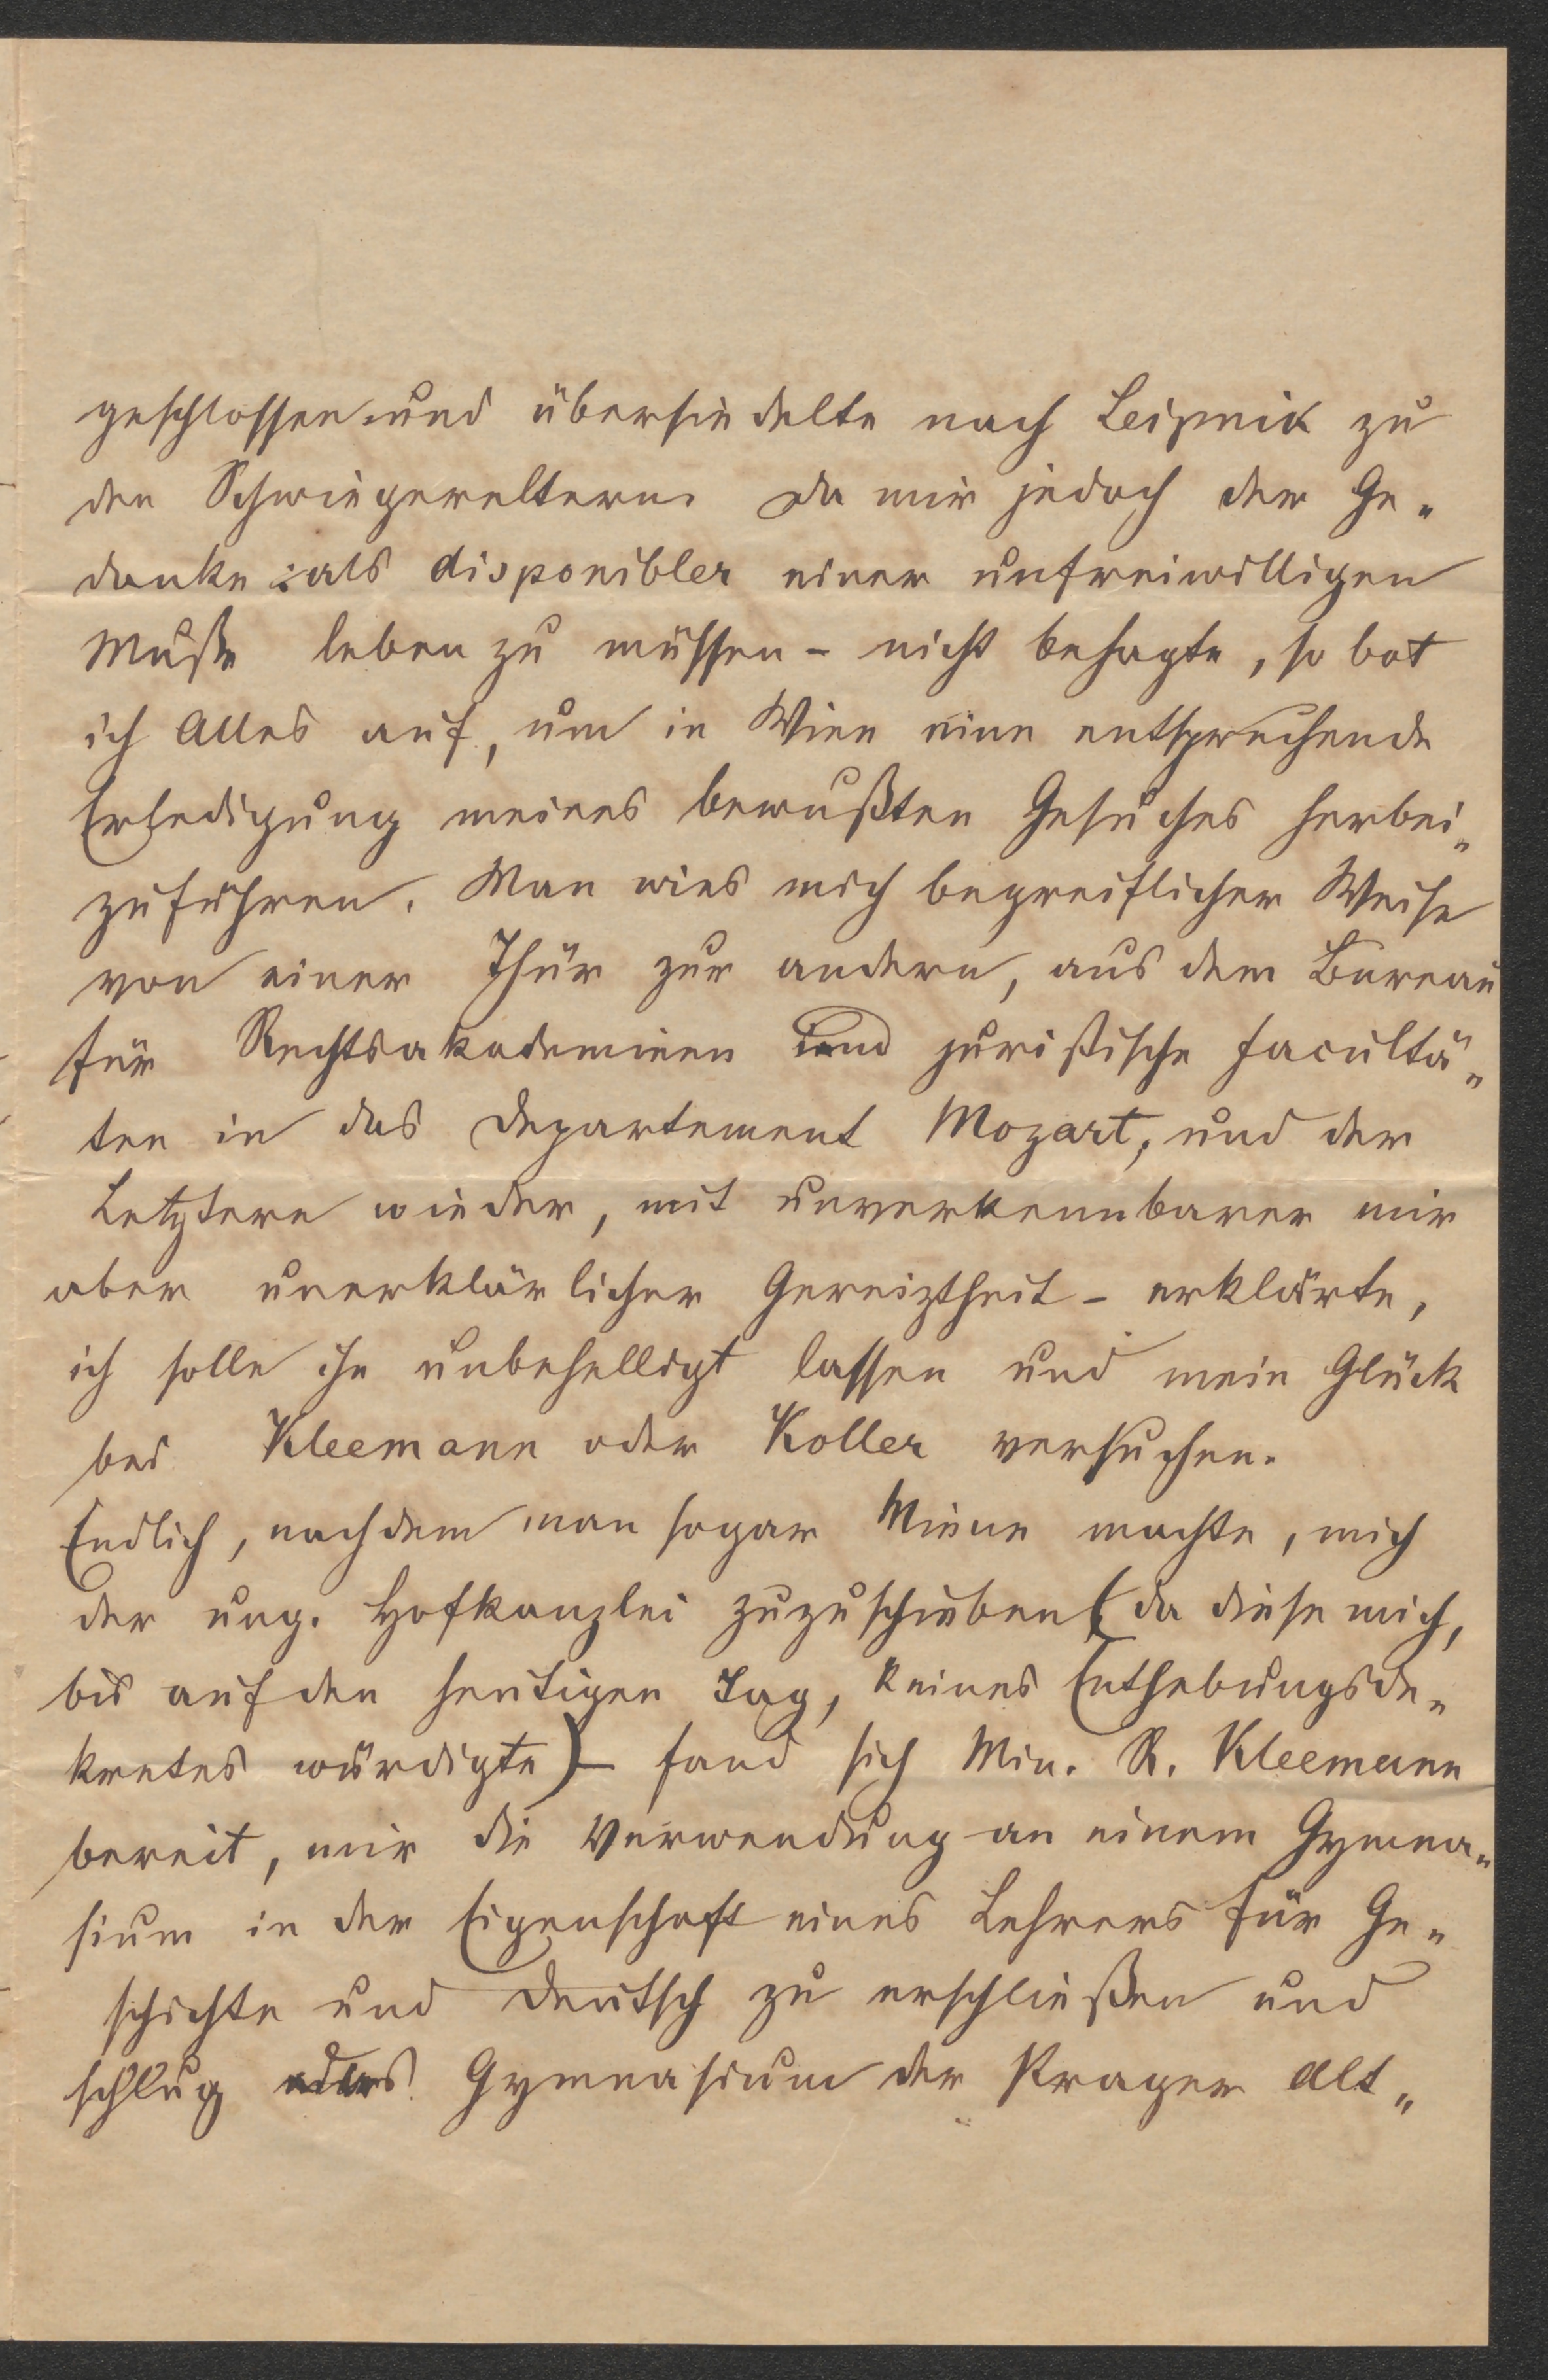 geschlossen und übersiedelte nach Leipnik zu
den Schwiegereltern. Da mir jedoch der Ge„
danke: als disponibler einer unfreiwilligen
Muße leben zu müssen – nicht behagte, so bot
ich Alles auf, um in Wien eine entsprechende
Erledigung meines bewußten Gesuches herbei„
zuführen. Man wies mich begreiflicher Weise
von einer Thür zur andern, aus dem Bureau
für Rechtsakademieen und juristische Facultä„
ten in das Departement Mozart, und der
Letztere wieder, mit unverkennbarer mir
aber unerklärlicher Gereiztheit – erklärte,
ich solle ihn unbehelligt lassen und mein Glück
bei Kleemann oder Koller versuchen.
Endlich, nachdem man sogar Miene machte, mich
der ung. Hofkanzlei zuzuschieben (da diese mich,
bis auf den heutigen Tag, keines Enthebungsde„
kretes würdigte) – fand sich Min. R. Kleemann
bereit, mir die Verwendung an einem Gymna„
sium in der Eigenschaft eines Lehrers für Ge„
schichte und Deutsch zu erschließen und
schlug das Gymnasium der Prager Alt„